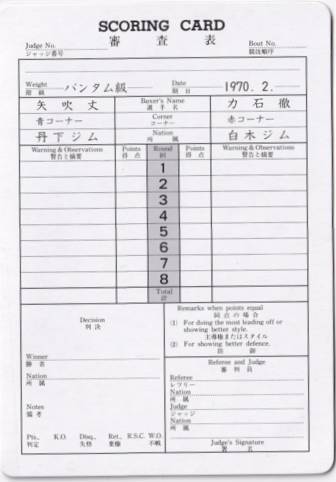 SCORING CARD
審査表
Judge No.
ジャッジ番号
Bout No.
競技順序
Weight バンタム級 Date 1970. 2.
階級 期日
矢吹丈 Boxer's Name 選手名 力石徹
青コーナー Corner コーナー 赤コーナー
丹下ジム Nation 所属 白木ジム
Warning & Observations Points Round Points Warning & Observations
警告と摘要 得点 回 得点 警告と摘要
1
2
3
4
5
6
7
8
Total
計
Decision
判決
Winner
勝者
Nation
所属
Notes
備考
Pts., K.O. Disq., Ret., R.S.C. W.O.
判定 失格 棄権 不戦
Remarks when points equal
同点の場合
(1) For doing the most leading off or
showing better style.
主導権またはスタイル
(2) For showing better defence.
防御
Referee and Judge
審判員
Referee
レフリー
Nation
所属
Judge
ジャッジ
Nation
所属
Judge's Signature
署名